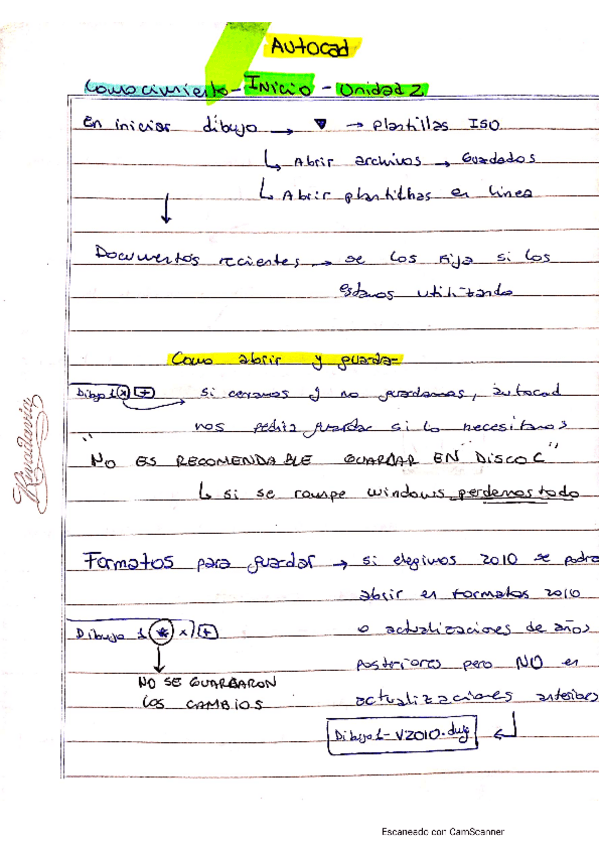 Autocad
Conocimiento - Inicio - Unidad 2
En iniciar dibujo → ▼ → Plantillas ISO
↳ Abrir archivos → Guardados
↳ Abrir plantillas en linea
↓
Documentos recientes → se los fija si los
estamos utilizando
Como abrir y guardar
Dibujo 1 x + → si cerramos y no guardamos, autocad
nos pedira guardar si lo necesitamos
"NO ES RECOMENDABLE GUARDAR EN DISCO C"
↳ si se rompe windows perdemos todo
Rivadavia
Formatos para guardar → si elegimos 2010 se podra
abrir en formatos 2010
Dibujo 1 * x +
o actualizaciones de años
posteriores pero NO en
NO SE GUARDARON
LOS CAMBIOS
actualizaciones anteriores
Dibujo1-V2010.dwg
Escaneado con CamScanner